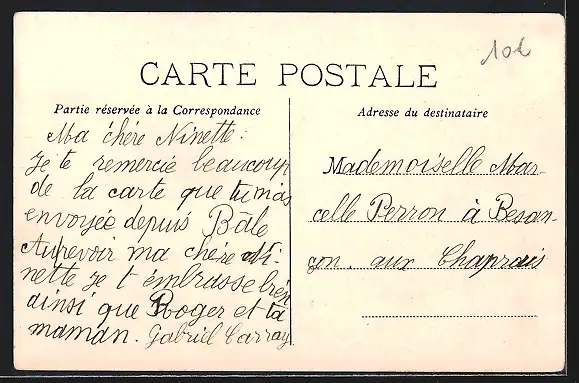 10€
CARTE POSTALE
Partie réservée à la Correspondance
Adresse du destinataire
Ma chére Ninette:
Je te remercie beaucoup
de la carte que tu m'as
envoyée depuis Bâle
Aurevoir ma chére Ni-
nette je t'embrasse bien
ainsi que Roger et ta
maman. Gabriel Carray
Mademoiselle Mar-
celle Perron à Besan-
çon. aux Chaprais